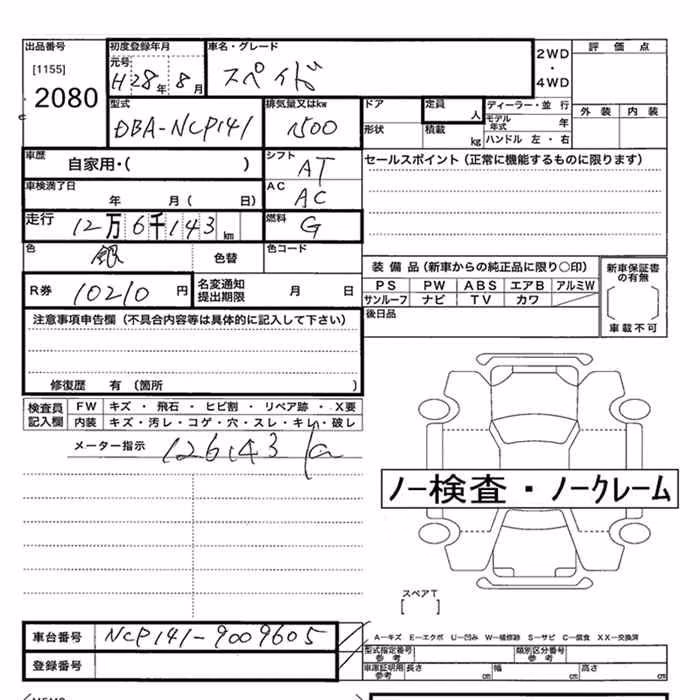 出品番号
[1155]
2080
初度登録年月
元号
H28年8月
車名・グレード
スペイド
2WD
・
4WD
評価点
外装 内装
型式
DBA-NCP141
排気量又はkw
1500
ドア
形状
定員
人
積載
kg
ディーラー・並行
モデル年式 年
ハンドル 左・右
車歴
自家用・( )
シフト
AT
セールスポイント (正常に機能するものに限ります)
車検満了日
年 月( 日)
AC
AC
走行
12万6千143km
燃料
G
色
銀
色替
色コード
R券
10210円
名変通知
提出期限
月 日
装備品 (新車からの純正品に限り○印)
PS PW ABS エアB アルミW
サンルーフ ナビ TV カワ
後日品
新車保証書
の有無
車載不可
注意事項申告欄 (不具合内容等は具体的に記入して下さい)
修復歴 有 (箇所 )
検査員
記入欄
FW キズ・飛石・ヒビ割・リペア跡・X要
内装 キズ・汚レ・コゲ・穴・スレ・キレ・破レ
メーター指示
126143
ノー検査・ノークレーム
スペアT
[ ]
車台番号
NCP141-9009605
登録番号
A-キズ E-エクボ U-凹み W-補修跡 S-サビ C-腐食 XX-交換済
型式指定番号
参考
類別区分番号
参考
車庫証明用
参考
長さ cm 幅 cm 高さ cm